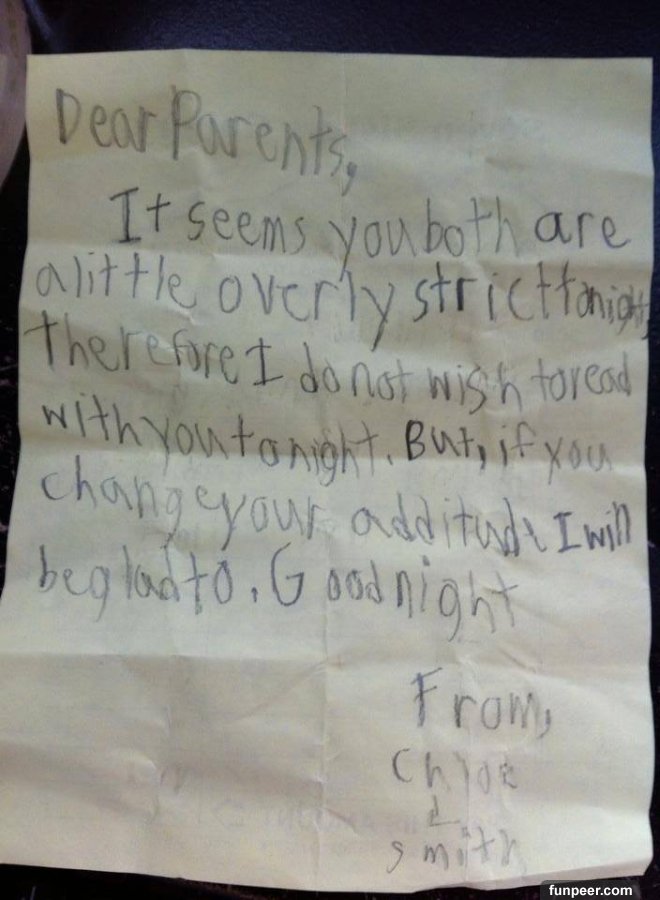 Dear Parents,
It seems you both are
a little overly strict tonight,
therefore I do not wish to read
with you tonight. But, if you
change your additude I will
be glad to. Good night
From,
Chloe
L
Smith
funpeer.com